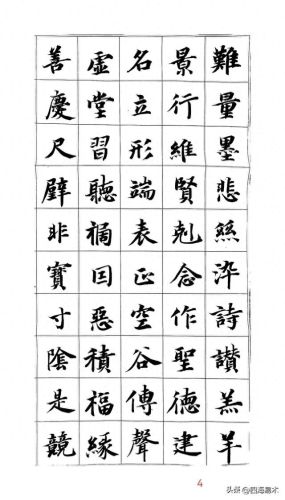 難量墨悲絲染詩讚羔羊
景行維賢剋念作聖德建
名立形端表正空谷傳聲
虛堂習聽禍因惡積福緣
善慶尺璧非寶寸陰是競
4
头条 @四海嘉木